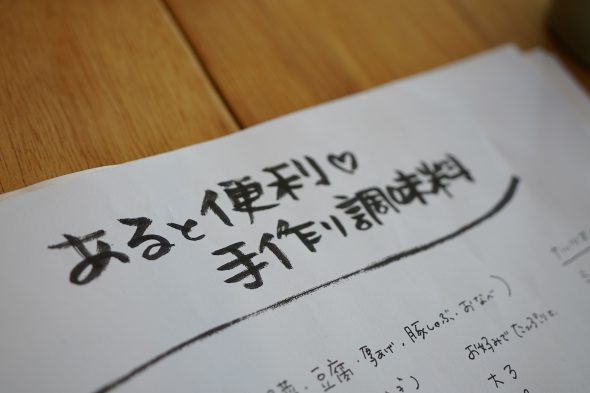 あると便利♡
手作り調味料
豆腐・厚あげ・豚しゃぶ・おなべ)
お好みでたっぷりと
大3